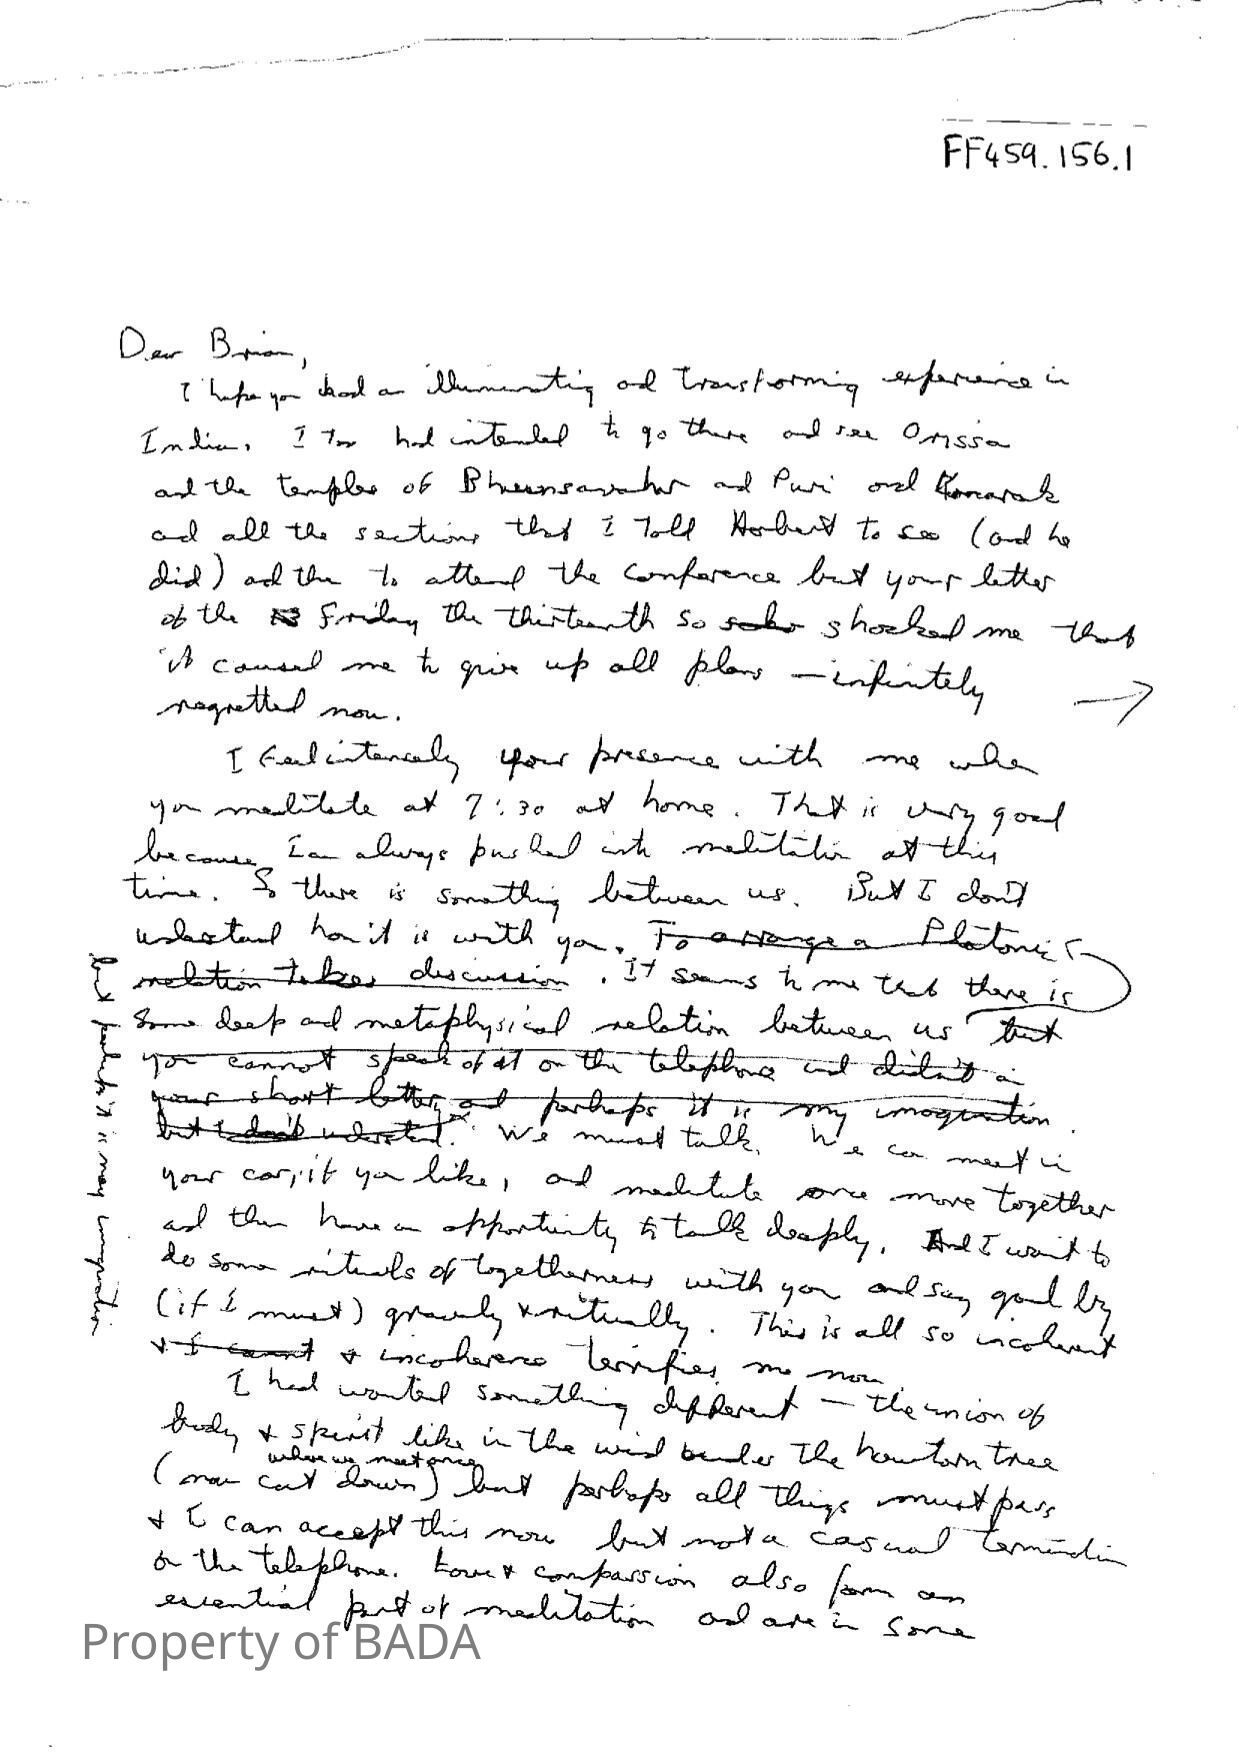 FF459.156.1
Dear Brian,
I hope you had an illuminating and transforming experience in
India. I too had intended to go there and see Orissa
and the temples of and Puri and Konarak
and all the sections that I told Herbert to see (and he
did) and then to attend the Conference but your letter
of the Friday the thirteenth so shocked me that
it caused me to give up all plans – infinitely
regretted now.
I feel intensely your presence with me when
you meditate at 7:30 at home. That is very good
because I am always pushed into meditation at this
time. So there is something between us. But I don't
understand how it is with you. To arrange a Platonic
relation takes discussion. It seems to me that there is
some deep and metaphysical relation between us but
you cannot speak of it on the telephone and didn't in
your short letter, and perhaps it is my imagination.
but I don't understand. We must talk. We can meet in
your car, if you like, and meditate once more together
and then have an opportunity to talk deeply. And I want to
do some rituals of togetherness with you and say good by
(if I must) gravely & ritually. This is all so incoherent
& I cannot & incoherence terrifies me now.
I had wanted something different – the union of
body & spirit like in the wind under the tree
where we met once
(now cut down) but perhaps all things must pass
& I can accept this now but not a casual termination
on the telephone. Love & compassion also form an
essential part of meditation and are in some
but perhaps it is my imagination
Property of BADA